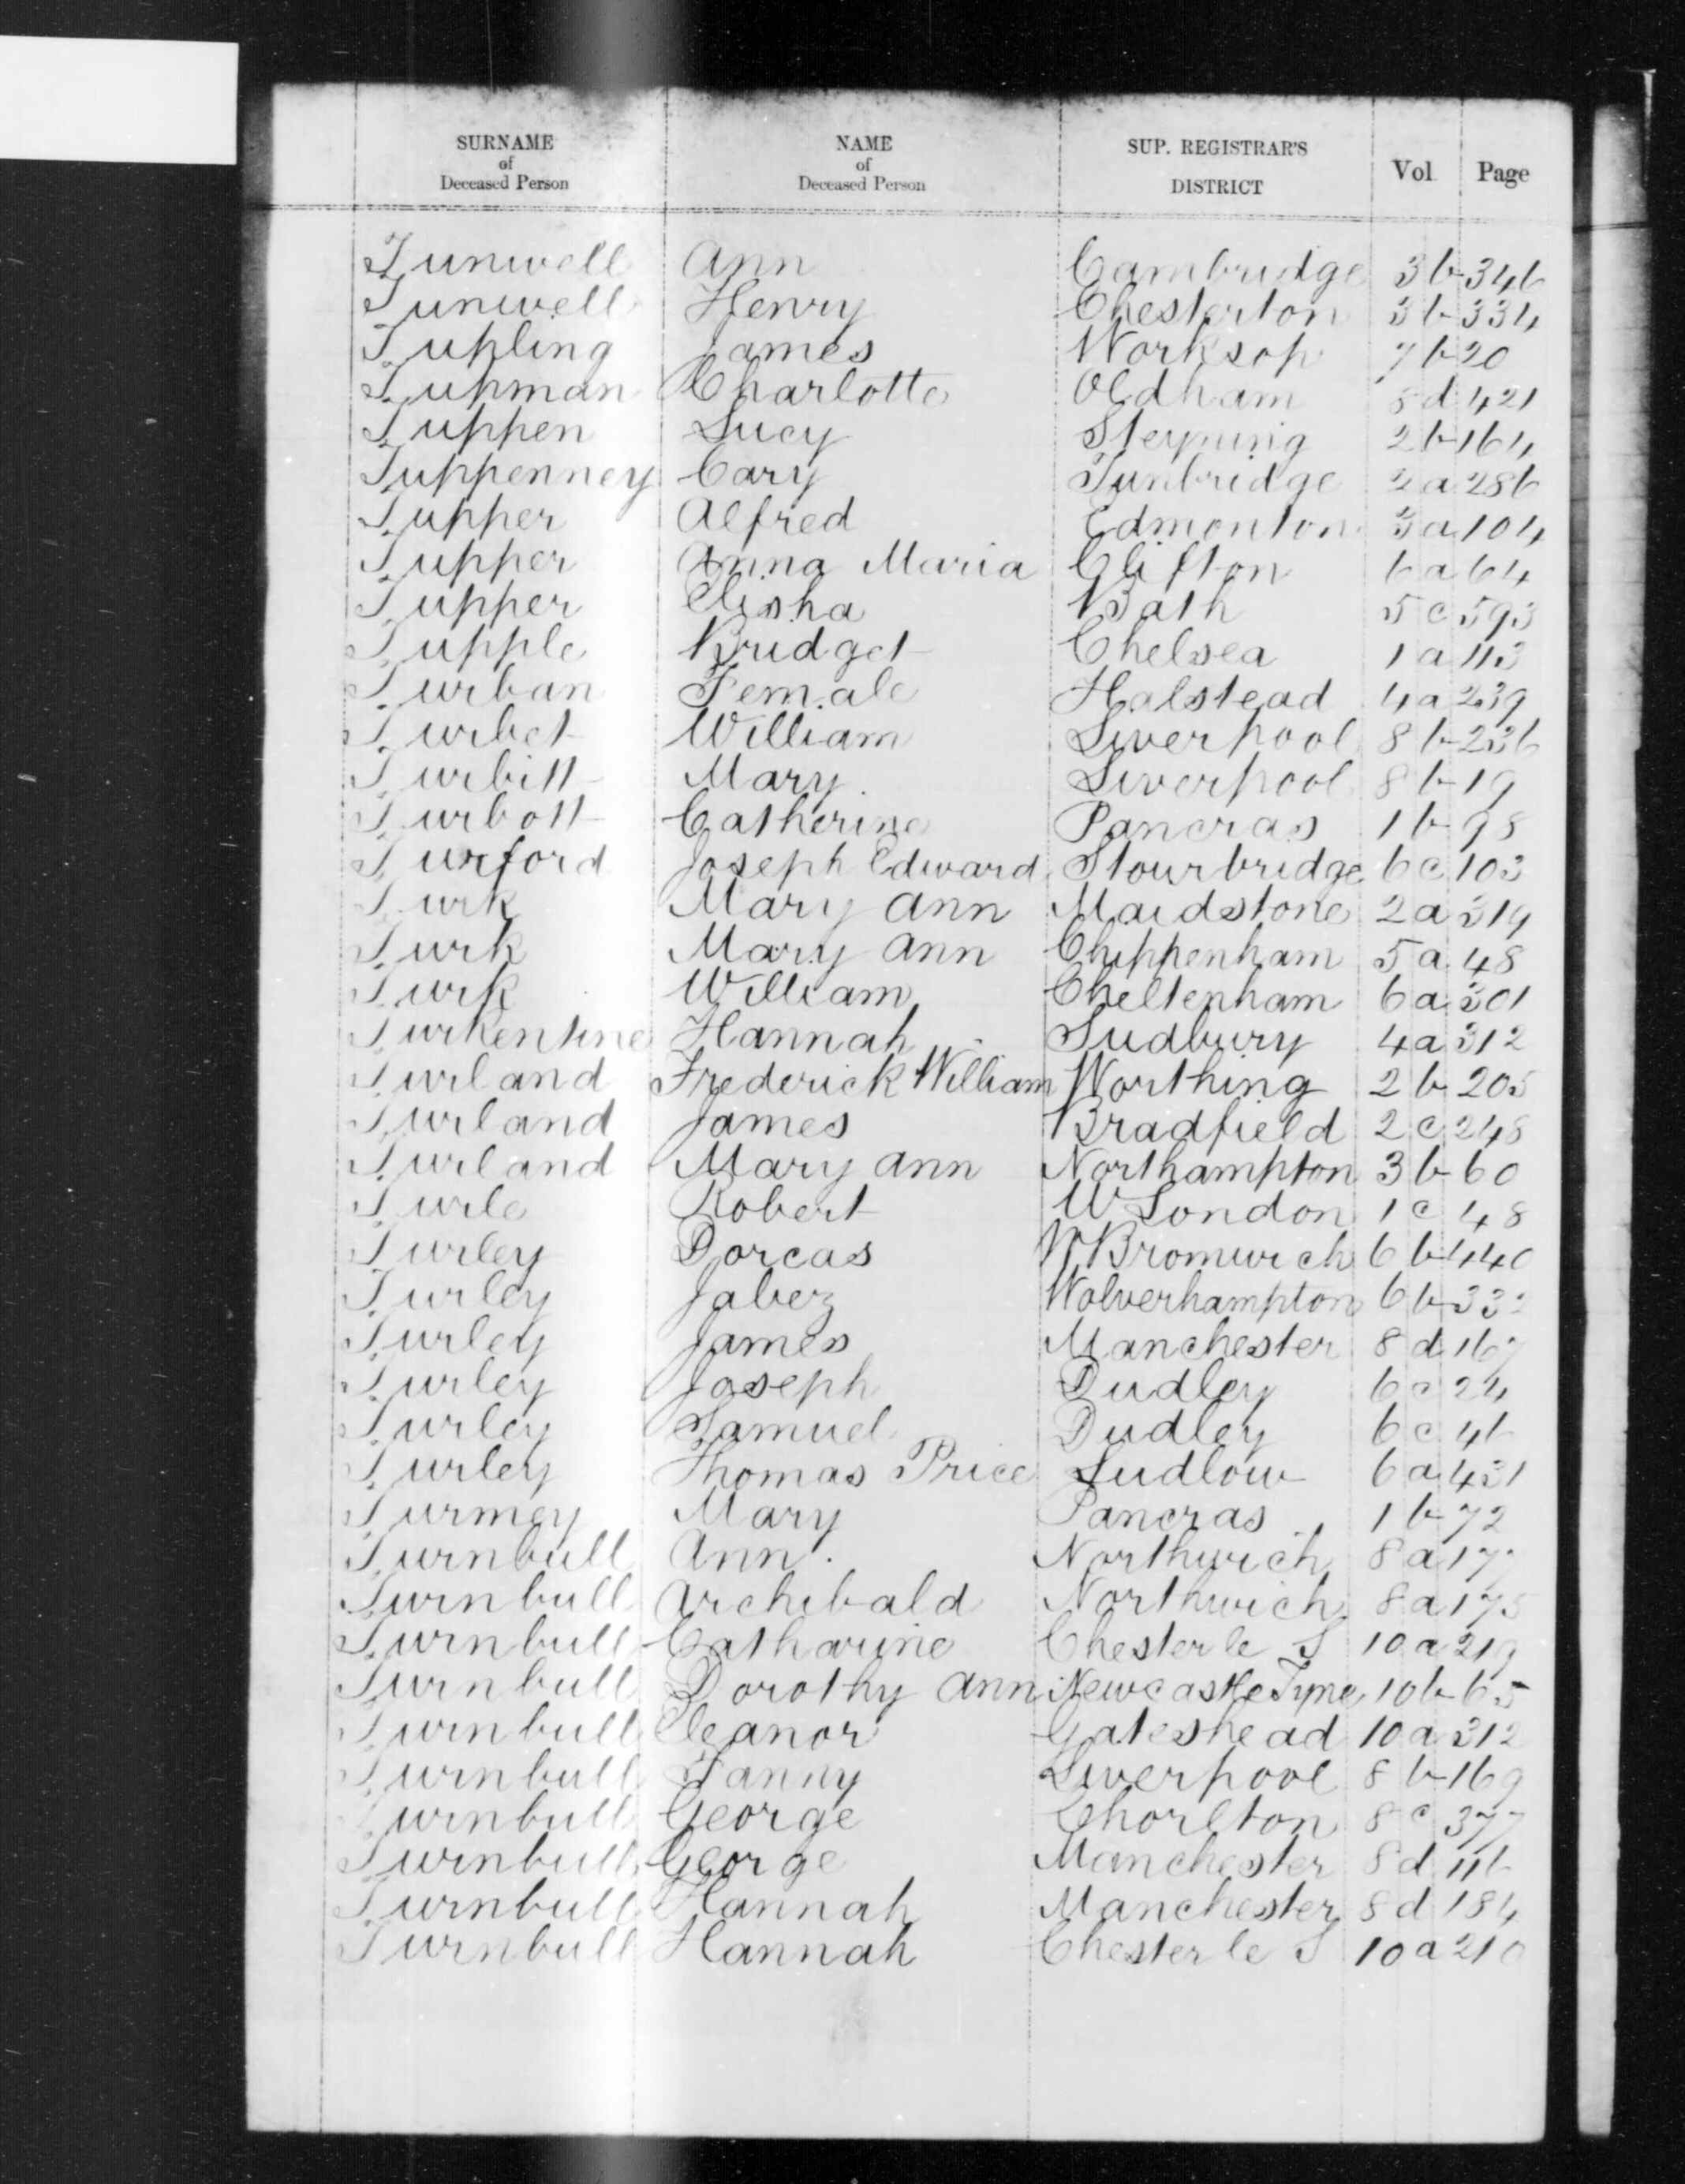 SURNAME of Deceased Person NAME of Deceased Person SUP. REGISTRAR'S DISTRICT Vol Page
Tunwell Ann Cambridge 3 b 346
Tunwell Henry Chesterton 3 b 334
Tupling James Worksop 7 b 20
Tupman Charlotte Oldham 8 d 421
Tuppen Lucy Steyning 2 b 164
Tuppenney Cary Tunbridge 2 a 286
Tupper Alfred Edmonton 3 a 104
Tupper Anna Maria Clifton 6 a 64
Tupper Elisha Bath 5 c 593
Tupple Bridget Chelsea 1 a 113
Turban Female Halstead 4 a 239
Turbet William Liverpool 8 b 236
Turbitt Mary Liverpool 8 b 19
Turbott Catherine Pancras 1 b 98
Turford Joseph Edward Stourbridge 6 c 103
Turk Mary Ann Maidstone 2 a 319
Turk Mary Ann Chippenham 5 a 48
Turk William Cheltenham 6 a 301
Turkentine Hannah Sudbury 4 a 312
Turland Frederick William Worthing 2 b 205
Turland James Bradfield 2 c 248
Turland Mary Ann Northampton 3 b 60
Turle Robert W London 1 c 48
Turley Dorcas W Bromwich 6 b 440
Turley Jabez Wolverhampton 6 b
Turley James Manchester 8 d 167
Turley Joseph Dudley 6 c 24
Turley Samuel Dudley 6 c 46
Turley Thomas Price Ludlow 6 a 431
Turmey Mary Pancras 1 b 72
Turnbull Ann Northwich 8 a 177
Turnbull Archibald Northwich 8 a 175
Turnbull Catharine Chester le S 10 a 219
Turnbull Dorothy Ann Newcastle Tyne 10 b 65
Turnbull Eleanor Gateshead 10 a 312
Turnbull Fanny Liverpool 8 b 169
Turnbull George Chorlton 8 c 377
Turnbull George Manchester 8 d 116
Turnbull Hannah Manchester 8 d 184
Turnbull Hannah Chester le S 10 a 210